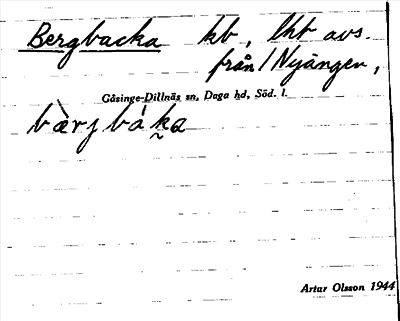 Bergbacka hb, lht avs.
från 1 Nyängen,
Gåsinge-Dillnäs sn, Daga hd, Söd. l.
bàrj báka
Artur Olsson 1944